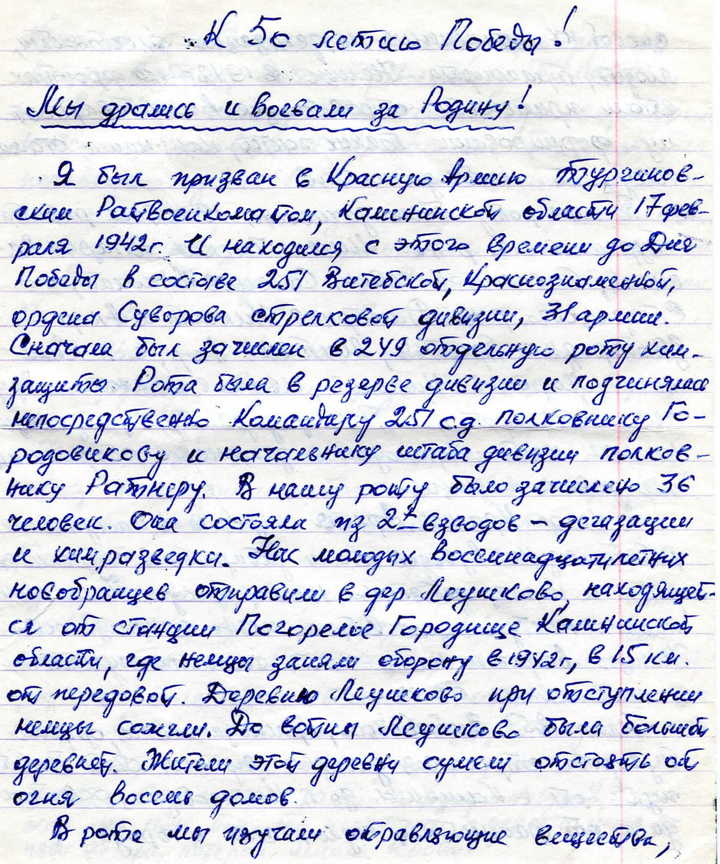 К 50 летию Победы!
Мы дрались и воевали за Родину!
Я был призван в Красную Армию Тургинов-
ским Райвоенкоматом, Калининской области 17 фев-
раля 1942 г. И находился с этого времени до Дня
Победы в составе 251 Витебской, Краснознаменной,
ордена Суворова стрелковой дивизии, 31 армии.
Сначала был зачислен в 249 отдельную роту хим.
защиты. Рота была в резерве дивизии и подчинялась
непосредственно Командиру 251 с.д. полковнику Го-
родовикову и начальнику штаба дивизии полков-
нику Ратнеру. В нашу роту было зачислено 36
человек. Она состояла из 2х взводов – дегазации
и химразведки. Нас молодых восемнадцатилетних
новобранцев отправили в дер. Леушково, находящей-
ся от станции Погорелье Городище Калининской
области, где немцы заняли оборону в 1942 г, в 15 км.
от передовой. Деревню Леушково при отступлении
немцы сожгли. До войны Леушково была большой
деревней. Жители этой деревни сумели отстоять от
огня восемь домов.
В роте мы изучали отравляющие вещества,